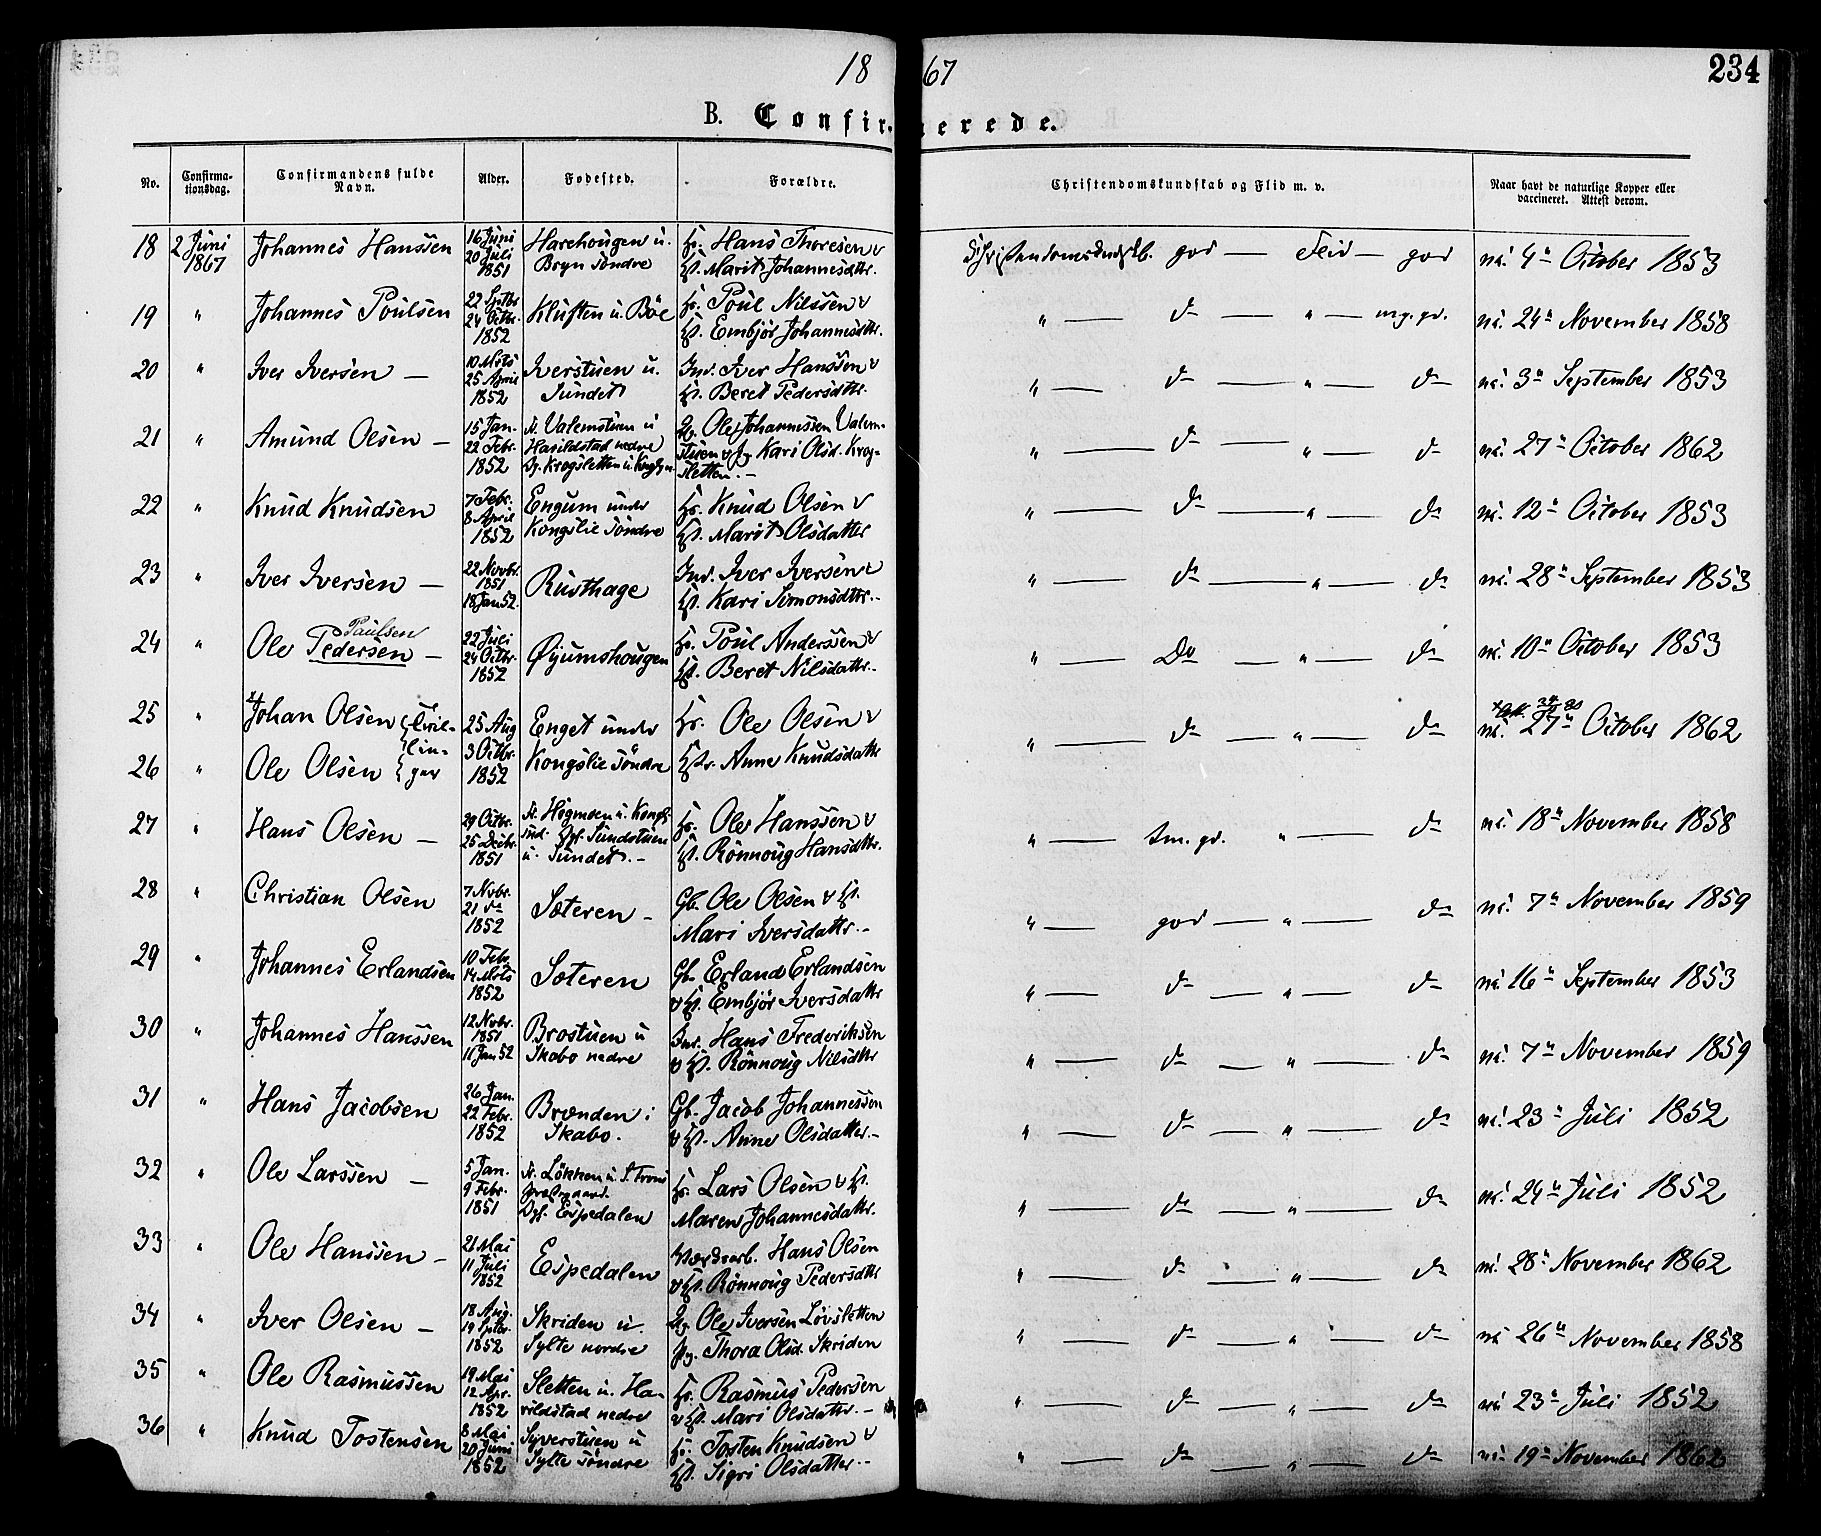 18 67
234
B. Confir- merede.
No.
Confirma-
tionsdag.
Confirmandens fulde
Navn.
Alder.
Fødested.
Forældre.
Christendomskundskab og Flid m. v.
Naar havt de naturlige Kopper eller
vaccineret. Attest derom.
18 2 Juni 1867 Johannes Hanssen 16 Juni 20 Juli 1851 Harehougen u. Bryn söndre Hans Thoresen Marit Johannesdttr. god — Flid — god 4 October 1853
19 " Johannes Poulsen 22 Sptbr 24 Octbr. 1852 Kluften u. Böe Poul Nilssen Embjör Johannesdttr. " — do — " — mg. gd. 24 November 1858
20 " Iver Iversen — 10 Mrts 25 April 1852 Iverstuen u. Sundet Ind. Iver Hanssen Beret Pedersdttr. " — do — " — do 3 September 1853
21 " Amund Olsen — 15 Jan. 22 Febr. 1852 Valemstuen u Havildstad nedre Krogsletten u. Ole Johannessen Valem- stuen Kari Olsd. Krog- sletten. — " — do — " — do 27 October 1862
22 " Knud Knudsen 7 Febr. 8 April 1852 Engum under Kongslie söndre Knud Olsen Marit Olsdatter " — do — " — do 12 October 1853
23 " Iver Iversen — 22 Novbr. 1851 18 Jan 52. Rusthage Ind. Iver Iversen Kari Simonsdttr. " — do — " — do 28 September 1853
24 " Ole Pedersen — Paulsen 22 Juli 24 Octbr. 1852 Øyumshougen Poul Anderssen Beret Nilsdattr. " — Do — " — do 10 October 1853
25 " Johan Olsen 25 Aug 3 Octbr. 1852 Enget under Kongslie söndre Ole Olsen Anne Knudsdattr " — do — " — do 27 October 1862
26 " Ole Olsen Tvil- lin- ger
27 " Hans Olsen — 29 Octbr. 25 Decbr. 1851 u. Kongsl. sud. Sundstuen u. Sundet. — Ole Hanssen Rönnoug Hansdttr. " — tm. gd. " — do 18 November 1858
28 " Christian Olsen 7 Nvbr. 21 do 1852 Sæteren — Gb. Ole Olsen Mari Iversdattr. — " — god — " — do 7 November 1859
29 " Johannes Erlandsen 10 Febr. 14 Mrts 1852 Sæteren Gb. Erland Erlandsen Embjör Iversdattr " — do — " — do 16 September 1853
30 " Johannes Hanssen 12 Nvbr. 1851 11 Jan 52 Brostuen u Skabo nedre Ind. Hans Frederiksen Rönnoug Nilsdttr " — do — " — do 7 November 1859
31 " Hans Jacobsen 26 Jan. 22 Febr. 1852 Brænden i Skabo. Gb. Jacob Johannessen Anne Olsdatter. — " — do — " — do 23 Juli 1852
32 " Ole Larssen — 5 Jan. 9 Febr. 1851 Lökken u. Espedalen Lars Olsen Maren Johannesdattr. " — do — " — do 24 Juli 1852
33 " Ole Hanssen — 21 Mai 11 Juli 1852 Espedalen Hans Olsen Rönnoug Pedersdttr " — do — " — do 28 November 1862
34 " Iver Olsen — 18 Aug. 19 Sptbr. 1852 Skriden u. Sylte nordre Ole Iversen Lövsletten Thora Olsd. Skriden " — do — " — do 26 November 1858
35 " Ole Rasmussen 19 Mai 12 Apr. 1852 Sletten u. Ha- vildstad nedre Rasmus Pedersen Mari Olsdattr. — " — do — " — do 23 Juli 1852
36 " Knud Tostensen 8 Mai 20 Juni 1852 Syverstuen u Sylte söndre Tosten Knudsen Sigri Olsdatter. — " — do — " — do 19 November 1862